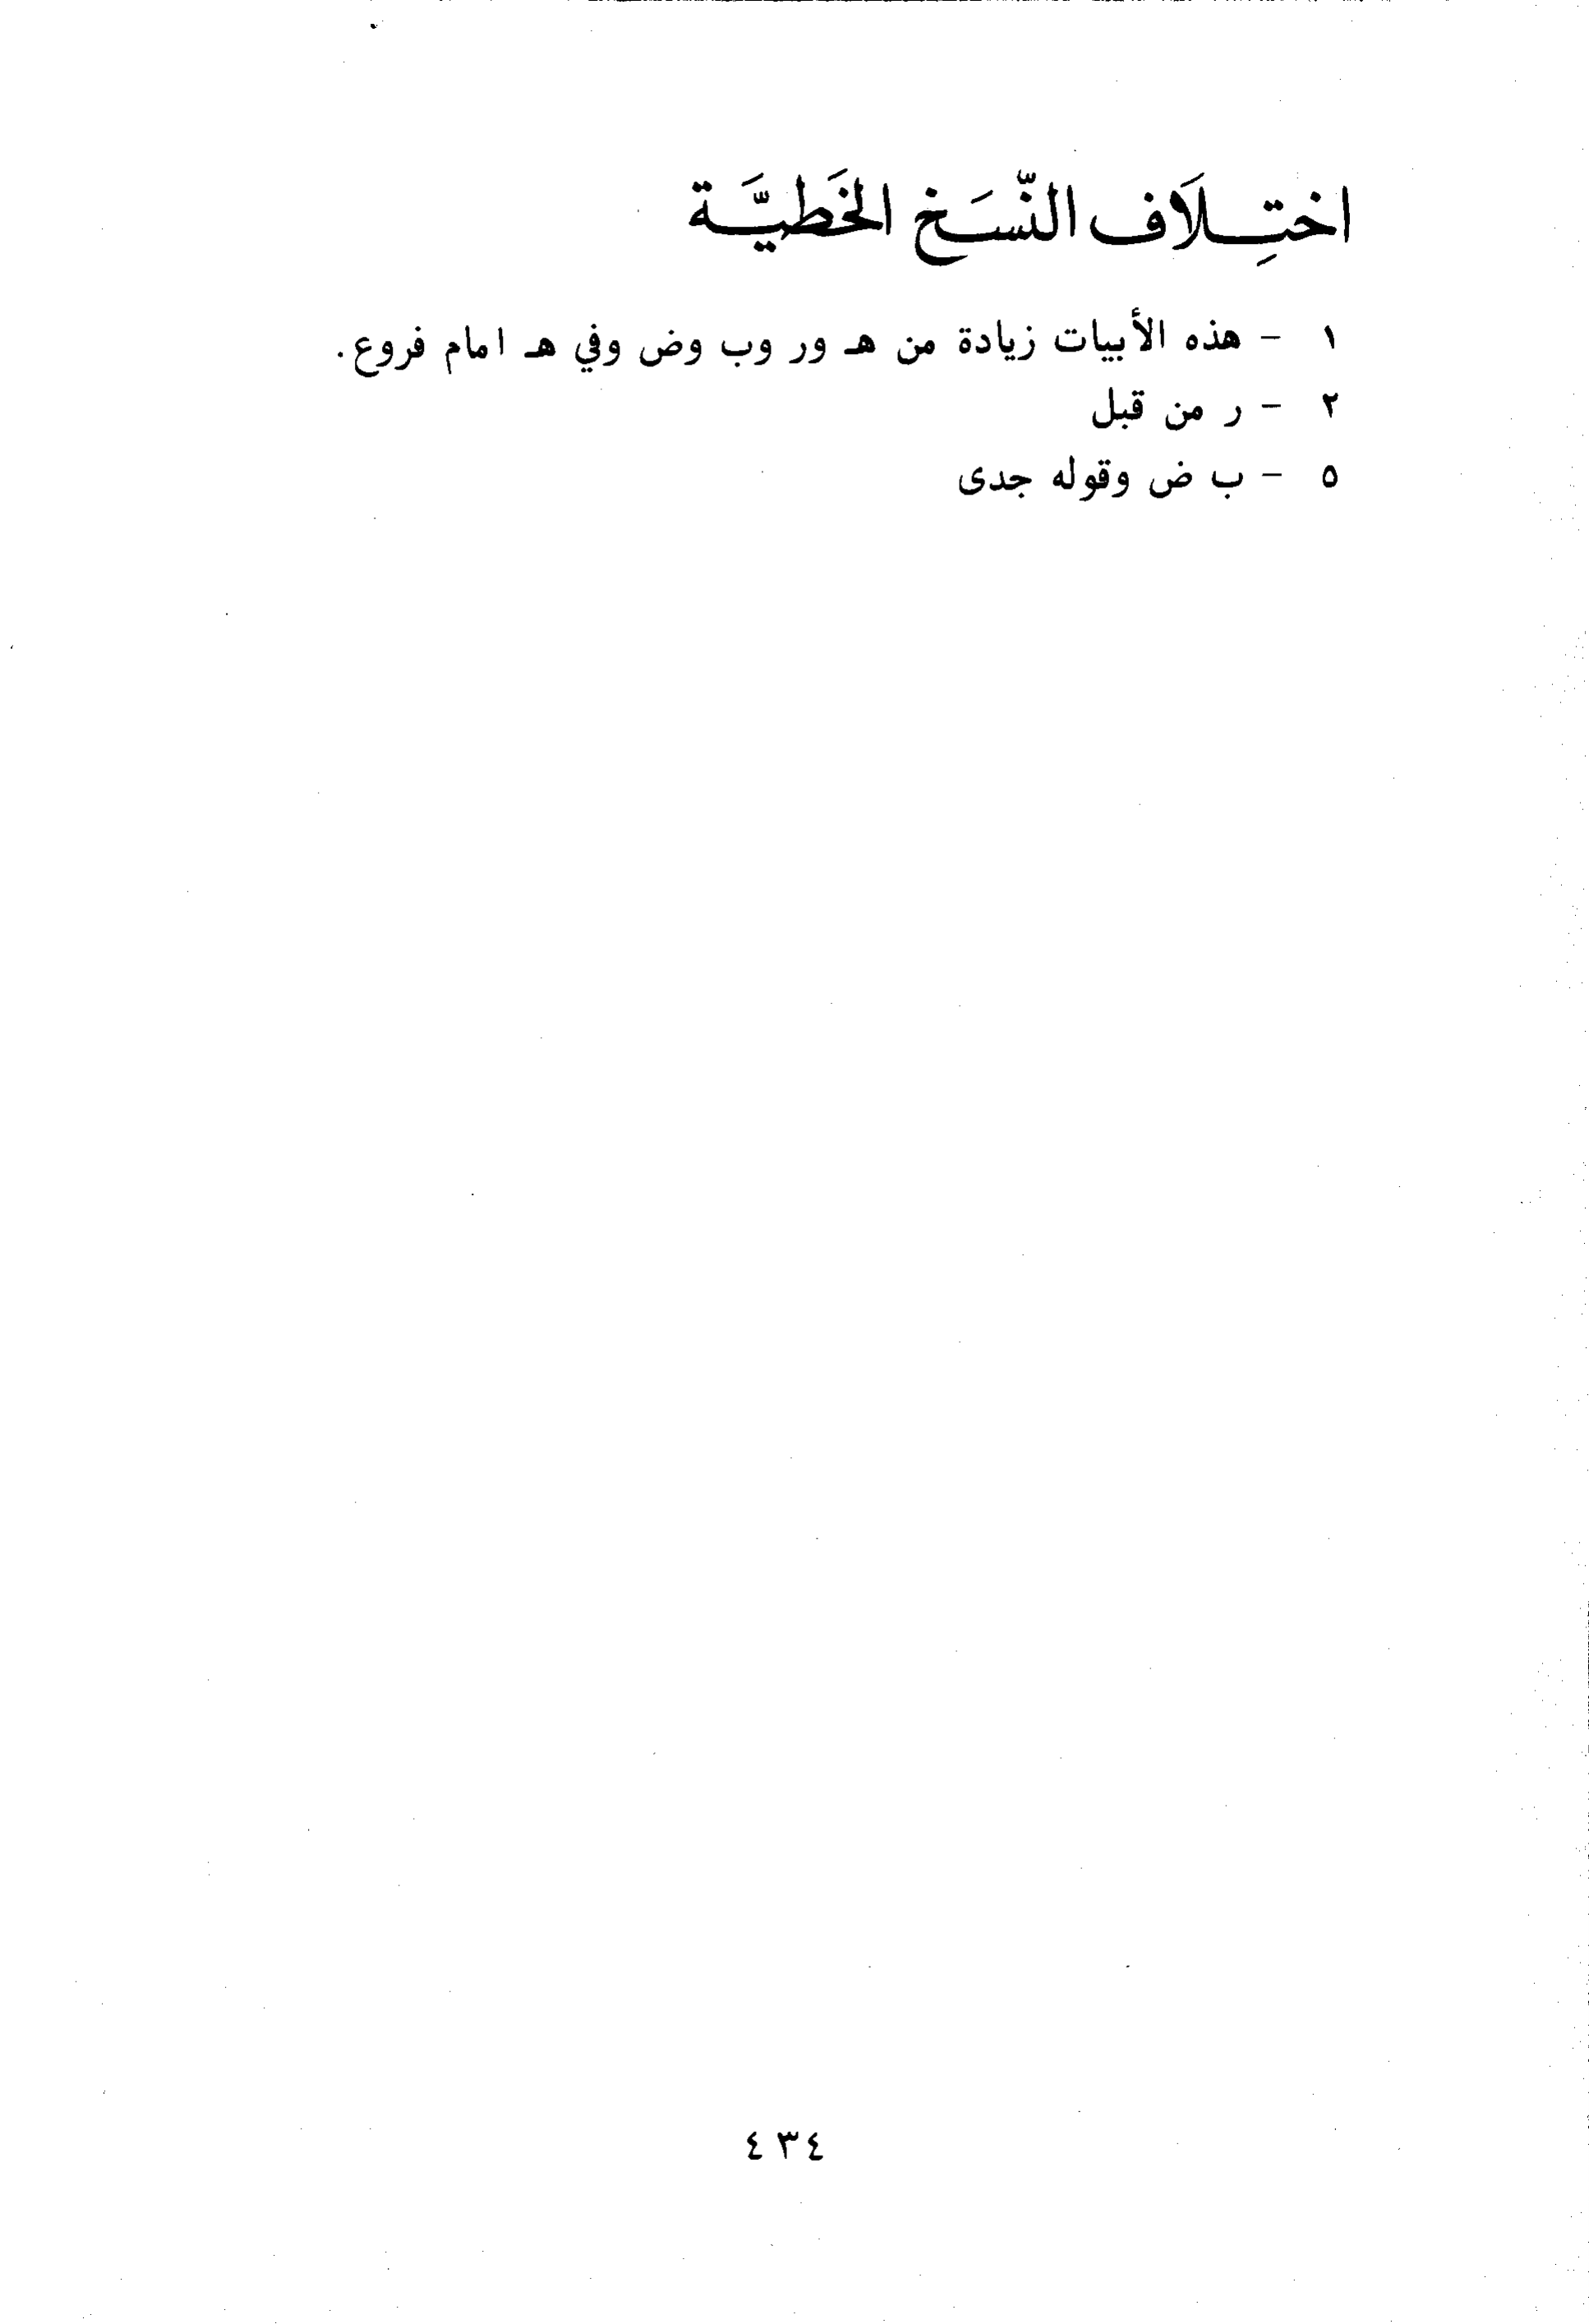 اختِلَاف النّسَخ الخَطيَّة
١ - هذه الأبيات زيادة من هـ ور وب وض وفي هـ امام فروع.
٢ - ر من قبل
٥ - ب ض وقوله جدى
٤٣٤